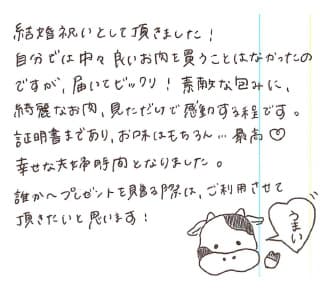 結婚祝いとして頂きました！
自分では中々良いお肉を買うことはなかったの
ですが、届いてビックリ！素敵な包みに、
綺麗なお肉、見ただけで感動する程です。
証明書まであり、お味はもちろん…最高♡
幸せな夫婦時間となりました。
誰かへプレゼントを贈る際は、ご利用させて
頂きたいと思います！
うまい